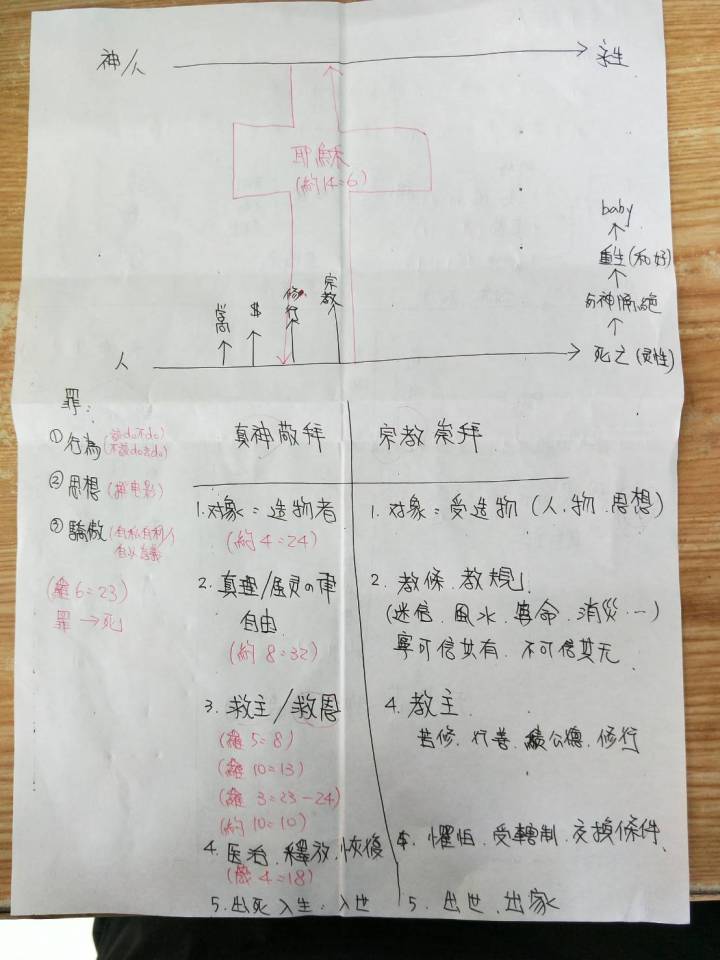 神/人
永生
耶穌
(約14=6)
baby
重生(和好)
与神隔絕
死亡(灵性)
$
修行
宗教
人
罪:
① 行為 (該do不do)
不該do去do)
② 思想
③ 驕傲 (自私自利/
自以為義
(羅6=23)
罪→死
真神敬拜
宗教崇拜
1. 対象=造物者
(約4=24)
1. 対象=受造物(人.物.思想)
2. 真理/
自由
(約8=32)
2. 教條.教規
(迷信.風水.算命.消災…)
寧可信其有.不可信其无
3. 救主/救恩
(羅5=8)
(羅10=13)
(羅3=23-24)
(約10=10)
4. 教主
苦修.行善.積公德.修行
4. 医治.釋放.恢復
4=18)
懼怕.受轄制.交換條件.
5. 出死入生.入世
5. 出世.出家